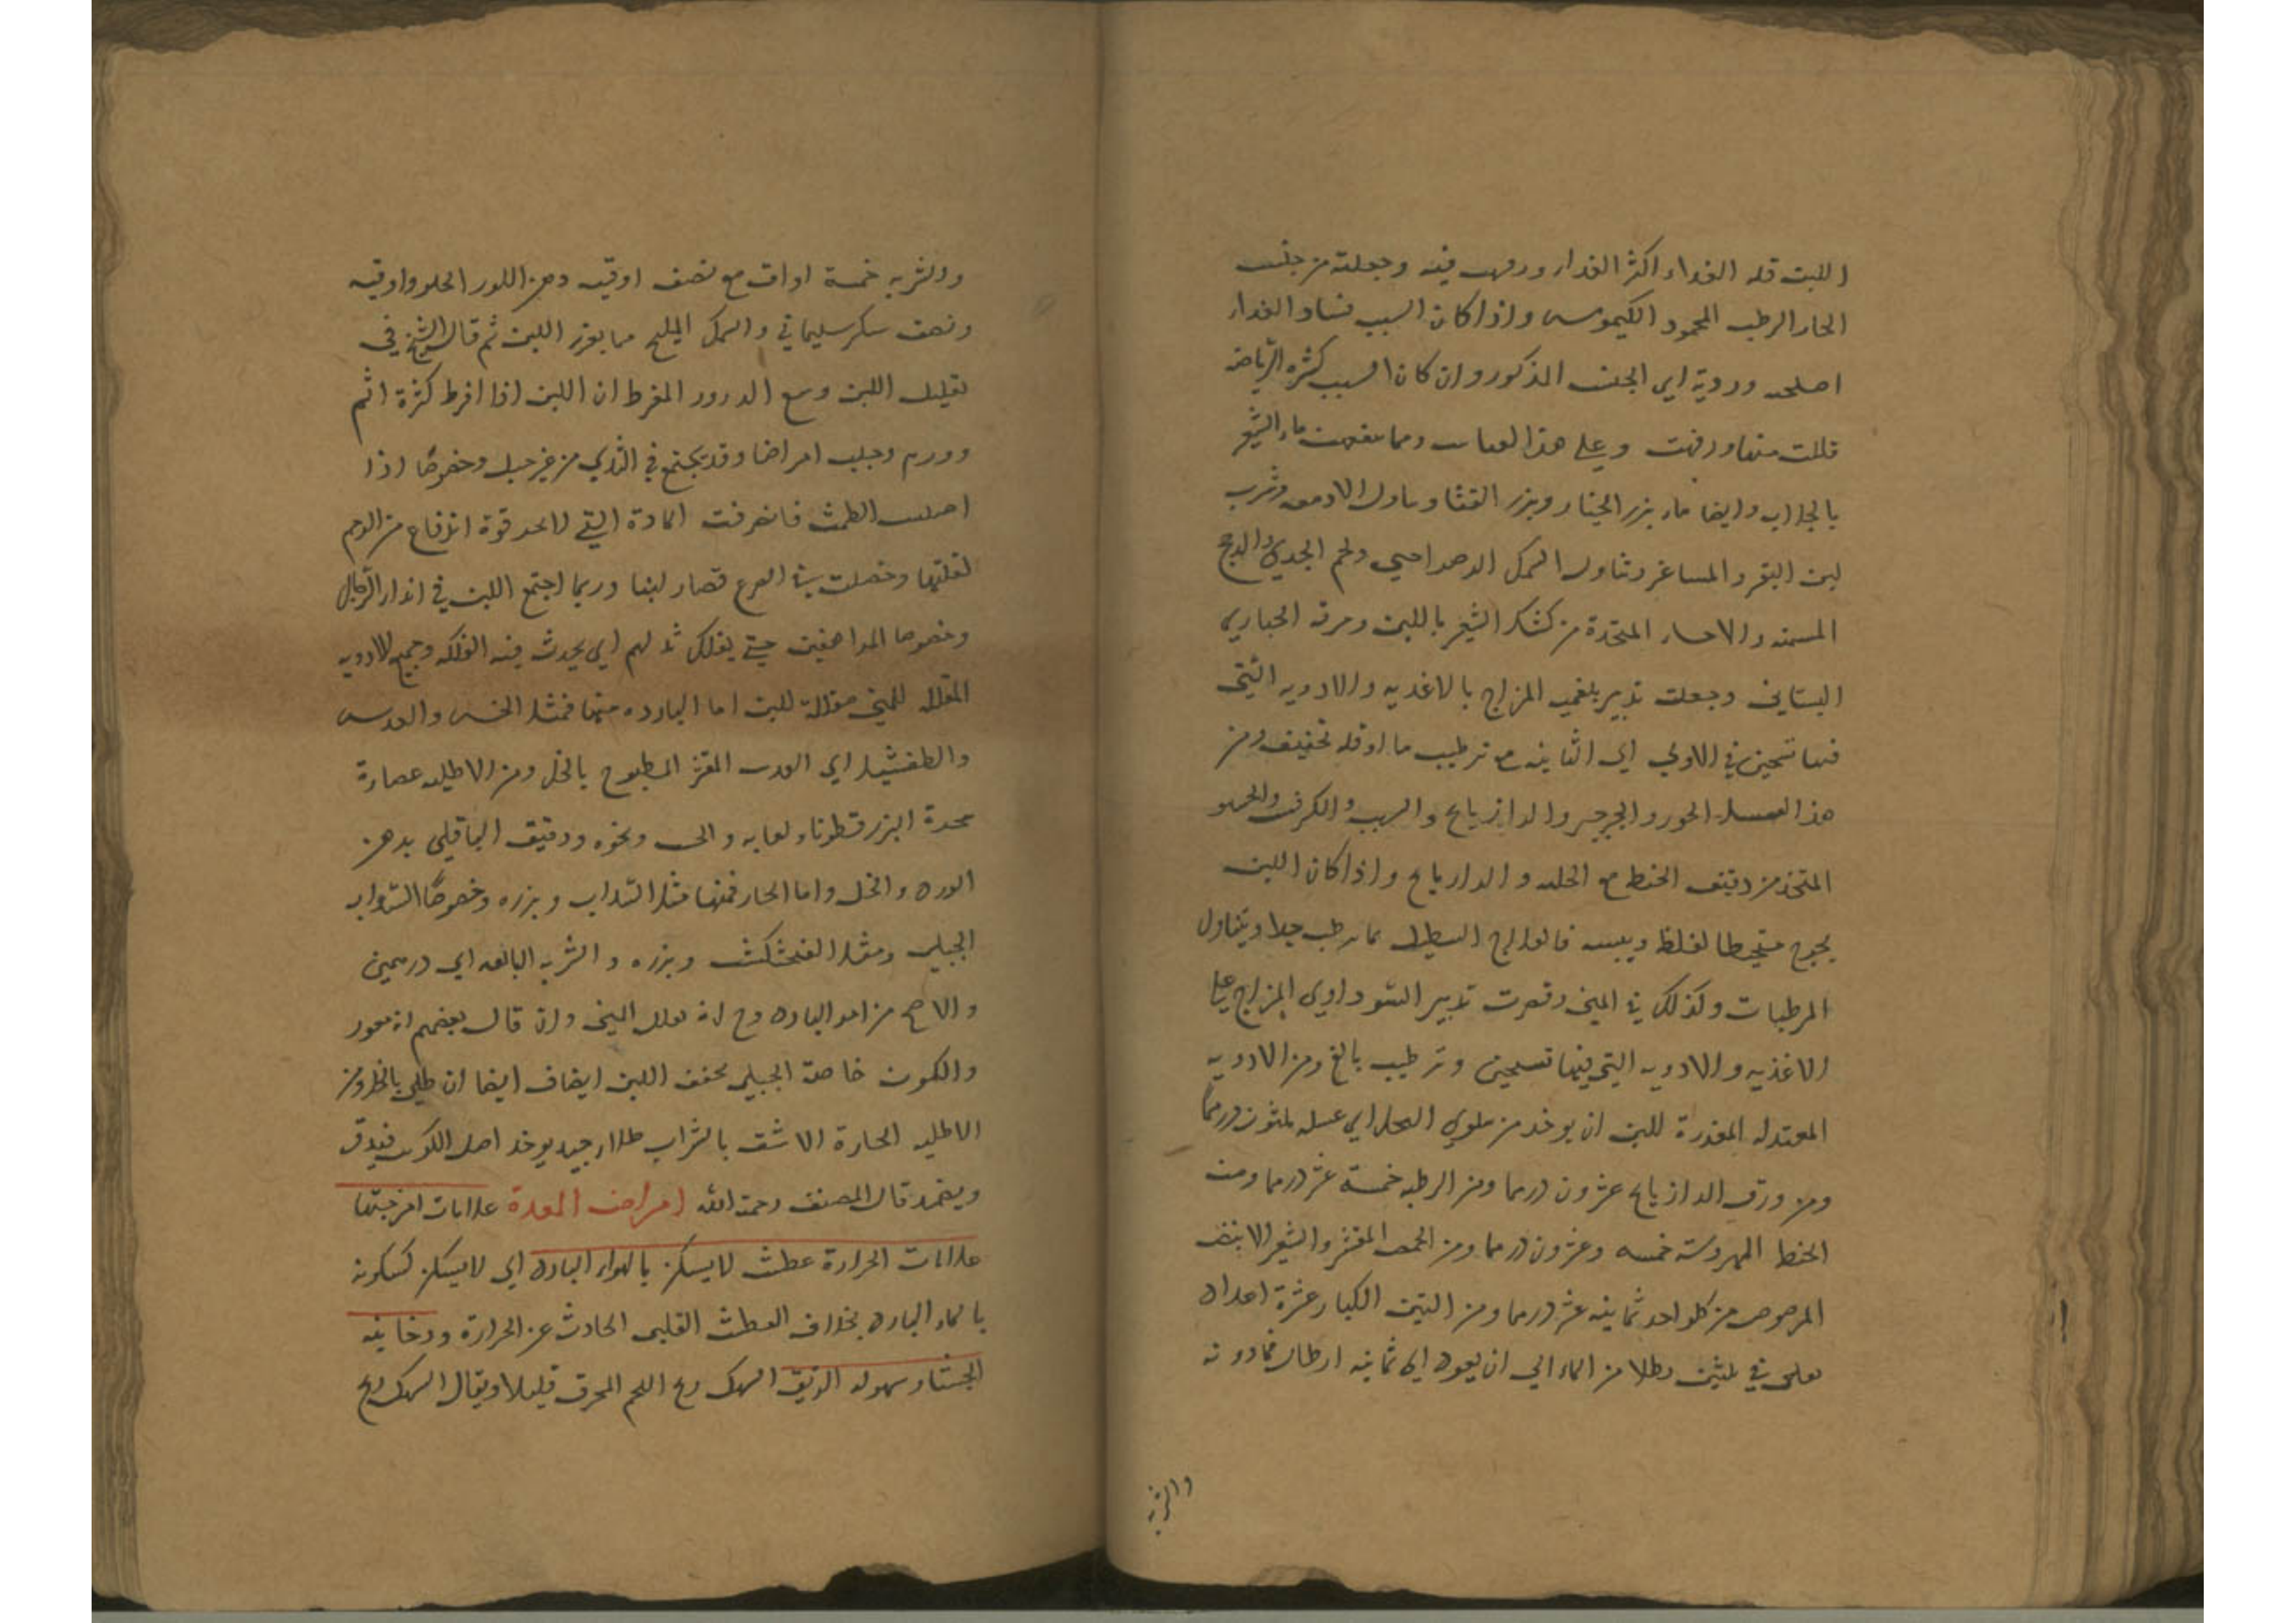 اللبن قله الغداء اكثر الغداء ورفهت فيه وجعلته من جنس
الحار الرطب المحمود الكيموس واذا كان السبب فساد الغداء
اصلحته ورديه اي الجنس المذكور وان كان السبب كثره الرياضه
قللت منها ورفهت وعلى هذا القياس ومما ينفعهن ماء الشعير
بالجلاب وايضا ماء بزر الخيار وبزر القثا الادمغه وشرب
لبن البقر والمساعز وتناول السمك ولحم الجدي والدجج
المسمنه والاحساء المتخذة من كشك الشعير باللبن ومرقه الخبازي
البستاني وجعلت تدبير بلغمي المزاج بالاغديه والادويه التي
فيها تسخين في الاولى اي الثانيه مع ترطيب ما او قله تجفيف ومن
هذا القبيل الجزر والجرجير والدازيانج والشبت والكرفس
المتخذ من دقيق الحنطه مع الحلبه والدازيانج واذا كان اللبن
يخرج متخيطا لغلظ ويبسه فالعلاج التنطيل بما يرطب جدا ويتناول
المرطبات وكذلك في المني وقصرت تدبير السوداوي المزاج على
الاغذيه والادويه التي فيها تسخين وترطيب بالغ ومن الادويه
المعتدله المغزرة للبن ان يوخذ من سلوي النحل اي عسله ثلثون درهما
ومن ورق الدازيانج عشرون درهما ومن الرطبه خمسة عشر درهما ومن
الحنطه المهروسته خمسه وعشرون درهما ومن الحمص المقشر والشعير الابيض
المرصوص من كل واحد ثمانيه عشر درهما ومن التين الكبار عشرة اعداد
يغلى في ثلثين رطلا من الماء الى ان يعود الى ثمانيه ارطال فما دونه
والشربه
والشربه خمسة اواق مع نصف اوقيه دهن اللوز الحلو واوقيه
ونصف سكر سليماني والسمك المليح مما يغزر اللبن ثم قال الشيخ في
تقليل اللبن ومنع الدرور المفرط ان اللبن اذا افرط كثرة الم
وورم وجلب امراضا وقد يجتمع في الثدي من غير حبل وخصوصا اذا
احتبس الطمث فانصرفت المادة التي لا تجد قوة اندفاع من الرحم
لقلتها وحصلت في الضرع فصار لبنا وربما اجتمع اللبن في اثداء الرجال
وخصوصا المراهقين حتى يفلك ثديهم اي يحدث فيه الفلكه وجميع الادويه
المقلله للمني مقللة للبن اما البارده منها فمثل الخس والعدس
والطفشيل اي العدس المقشر المطبوخ بالخل ومن الاطليه عصارة
البزر قطونا ولعابه والخس ونحوه ودقيق الباقلى بدهن
الورد والخل واما الحار فمنها مثل السداب وبزره وخصوصا السداب
الجبلي ومثل الفنجنكشت وبزره والشربه البالغه اي درهمين
والاصح من امر الباذروج انه يقلل المني وان قال بعضهم انه
والكمون خاصة الجبلي يجفف اللبن ايضا ان طلي بالخل ومن
الاطليه الحارة الاشق بالشراب طلاء جيد يوخذ اصل الكرنب فيدق
ويضمد قال المصنف رحمة الله امراض المعدة علامات امزجتها
علامات الحرارة عطش لا يسكن بالهواء البارد اي لا يسكن كسكونه
بالماء البارد بخلاف العطش القلبي الحادث عن الحرارة ودخانيه
الجشا وسهوله الريق السهك ريح اللحم المحرق قليلا ويقال السهك ريح